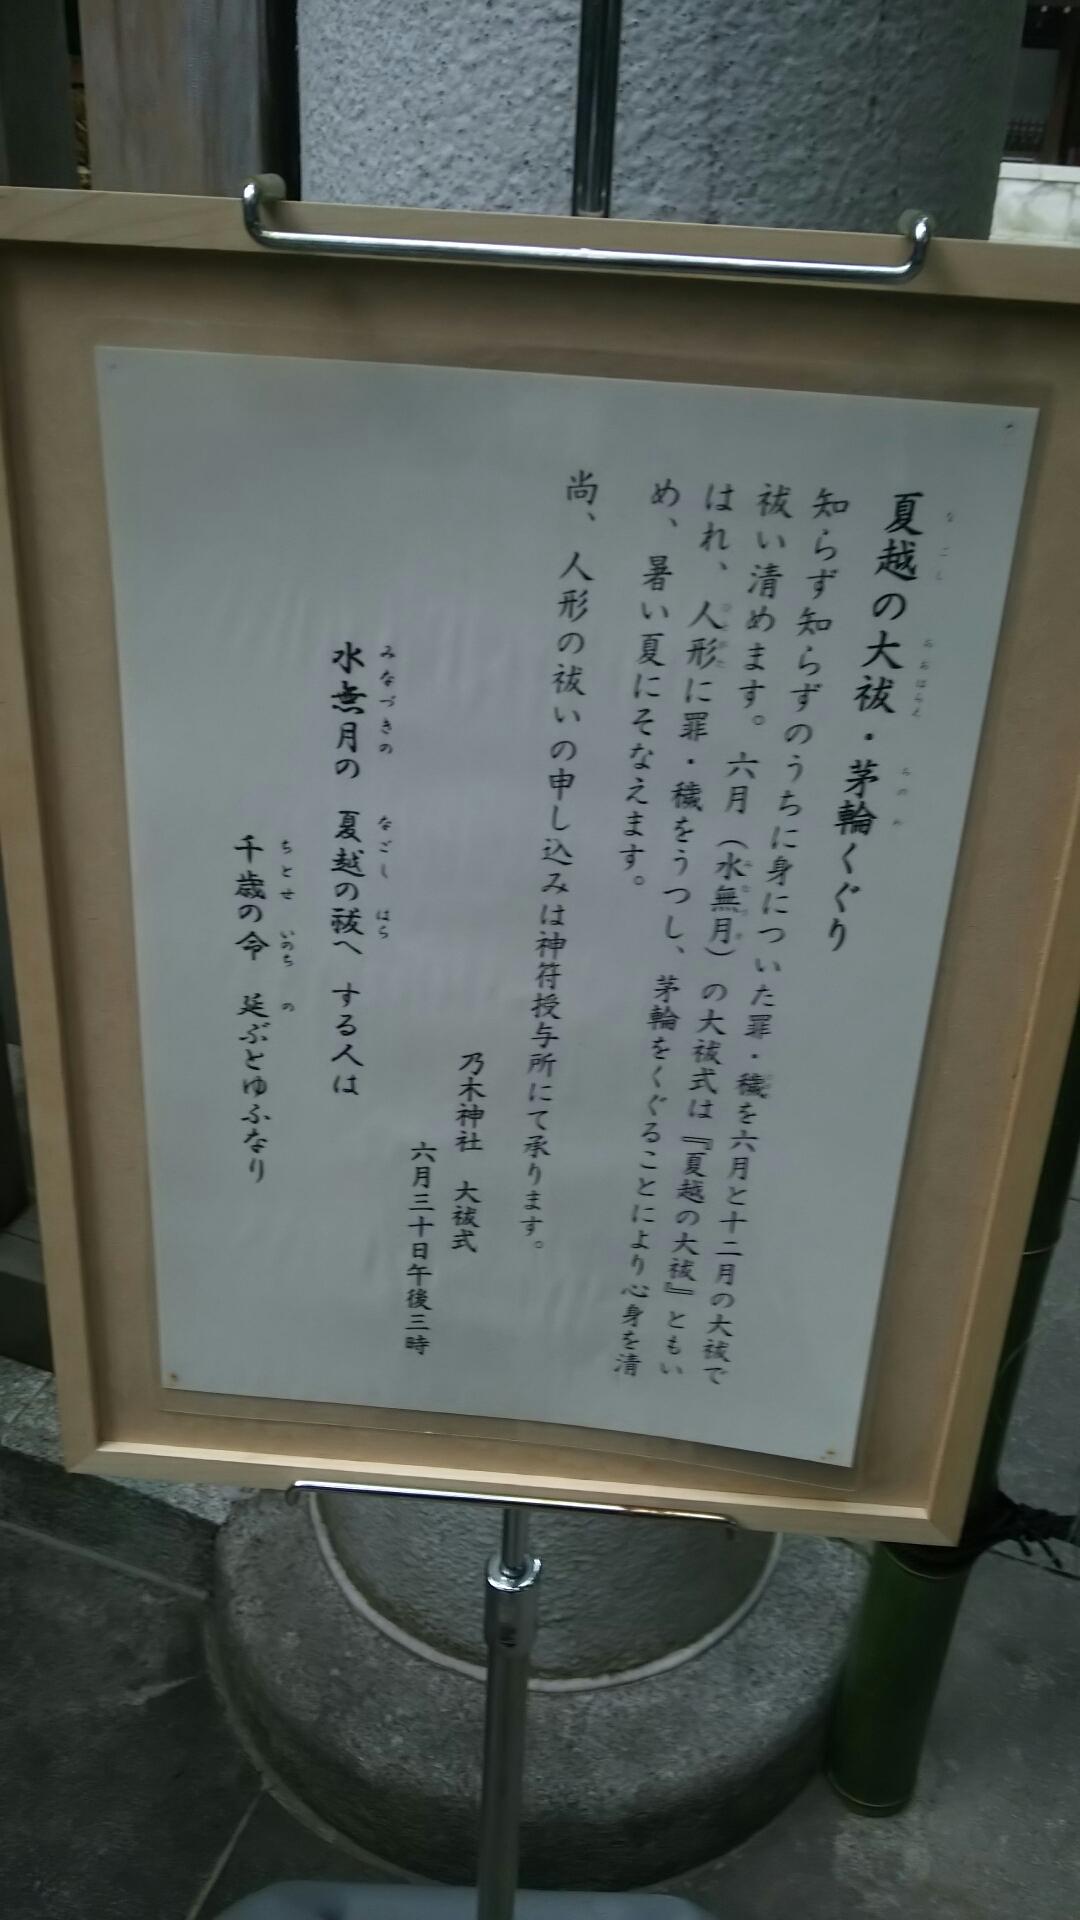 夏越の大祓・茅輪くぐり
知らず知らずのうちに身についた罪・穢を六月と十二月の大祓で
祓い清めます。六月（水無月）の大祓式は『夏越の大祓』ともい
はれ、人形に罪・穢をうつし、茅輪をくぐることにより心身を清
め、暑い夏にそなえます。
尚、人形の祓いの申し込みは神符授与所にて承ります。
乃木神社 大祓式
六月三十日午後三時
水無月の 夏越の祓へ する人は
千歳の命 延ぶとゆふなり